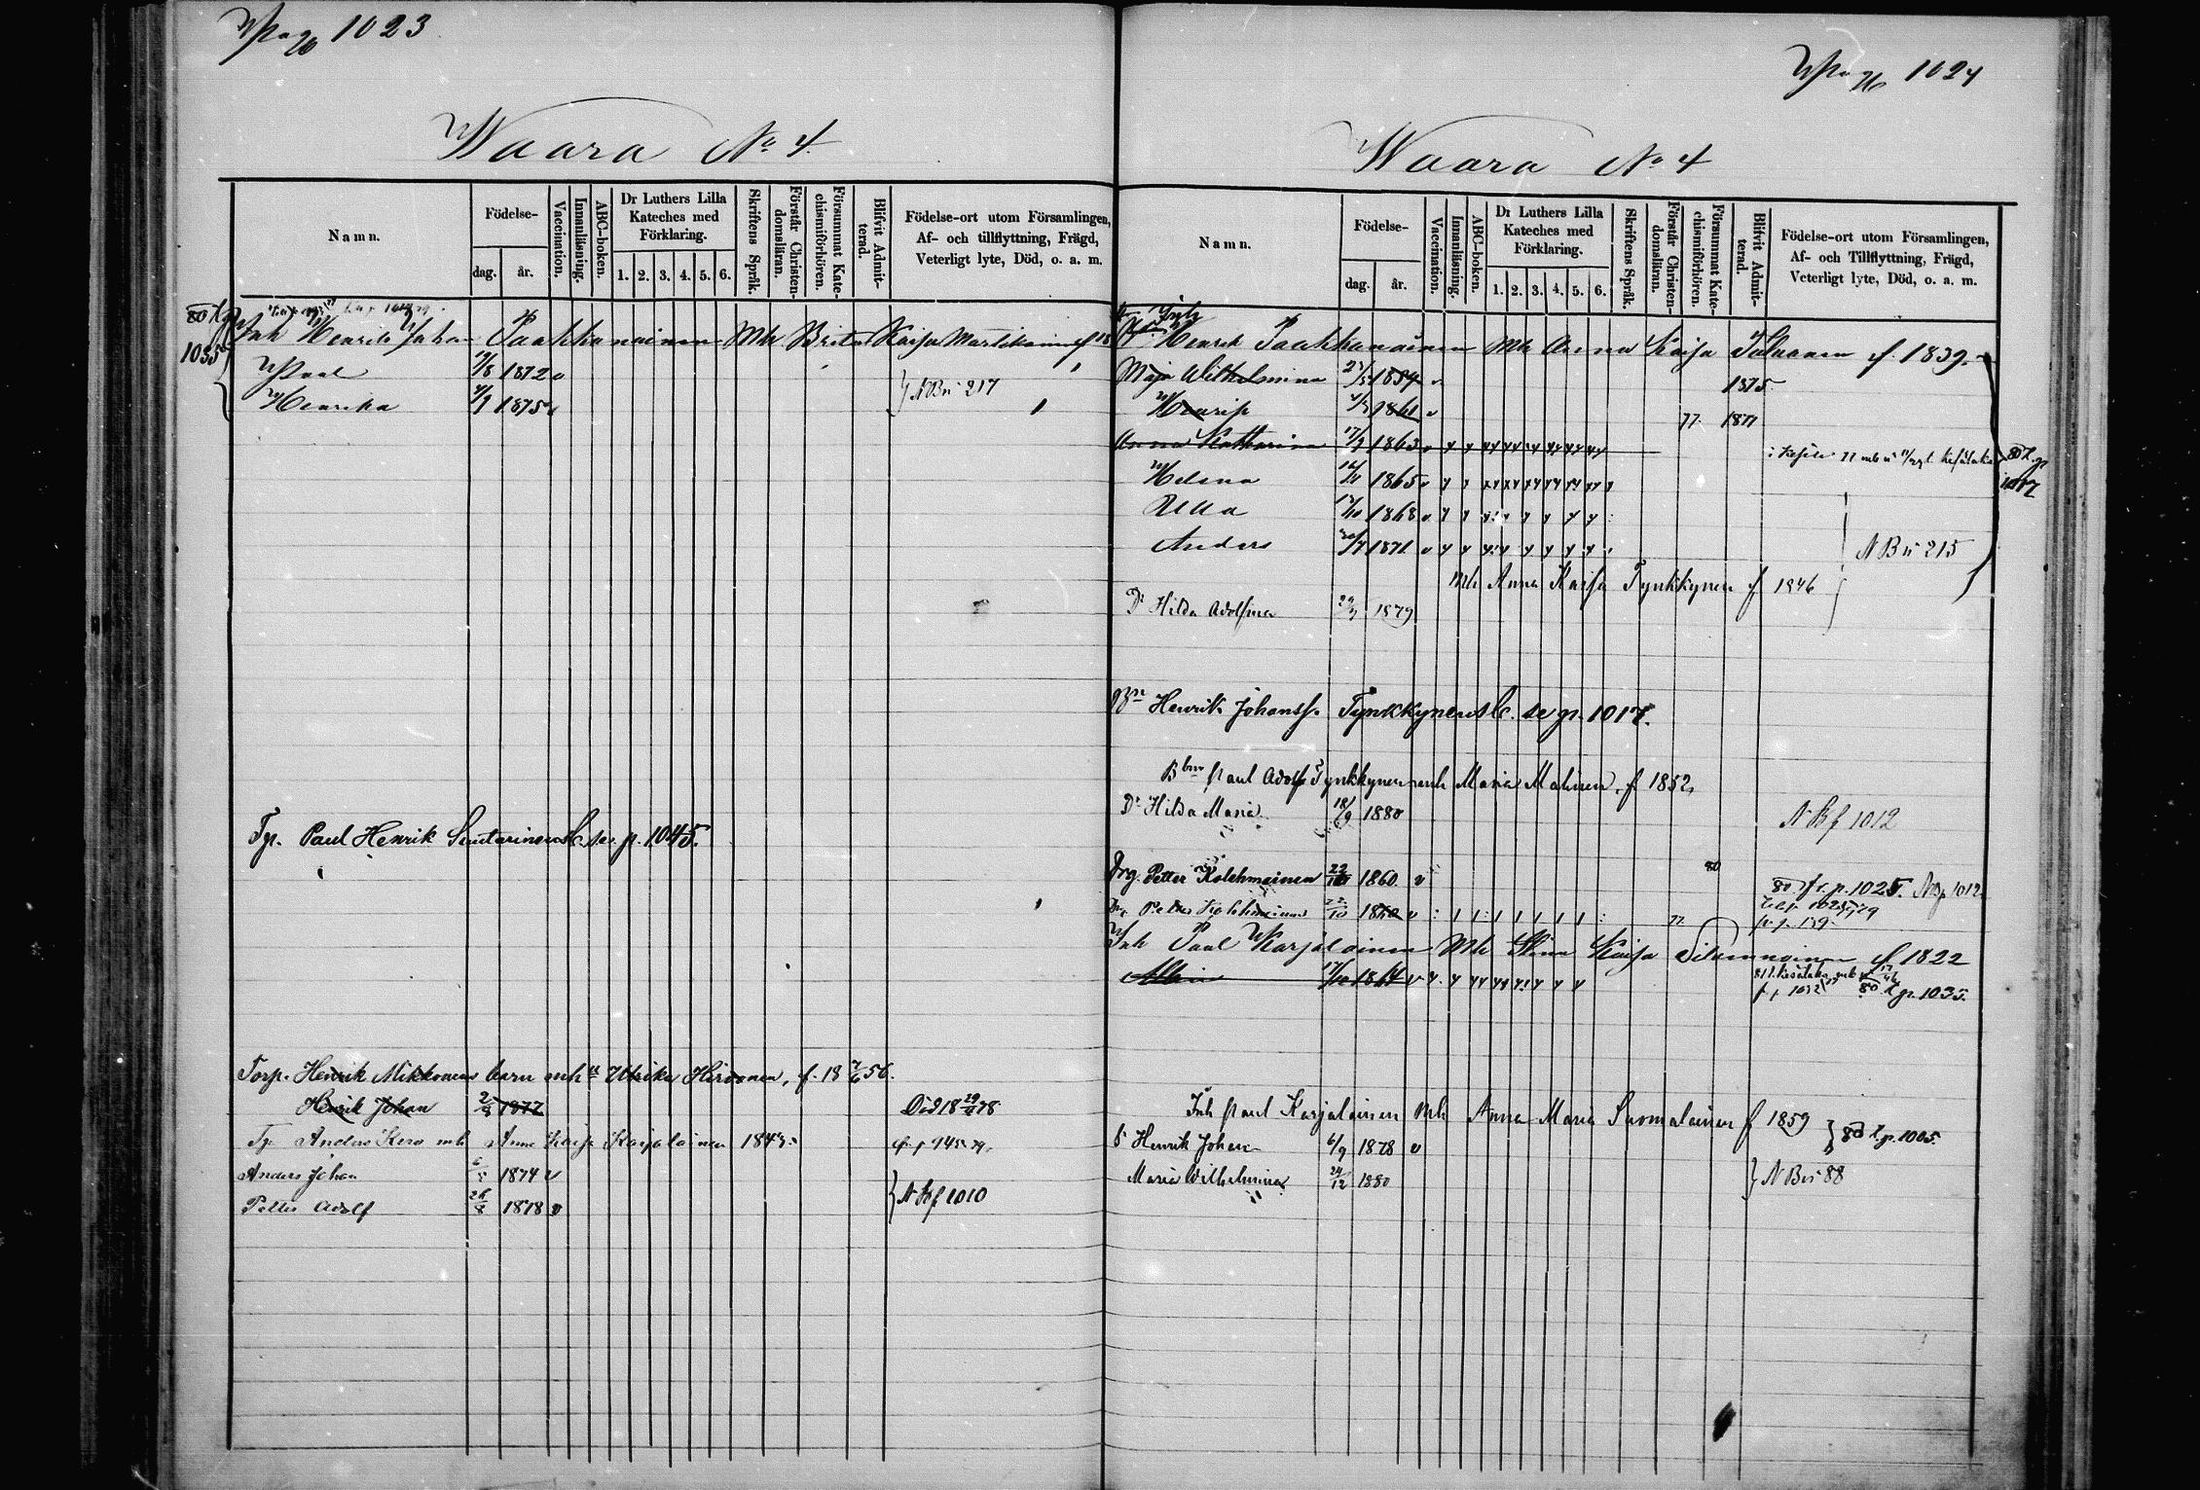 Pag 1023
Waara No 4.
Namn.
Födelse-
dag.
år.
Vaccination.
Innanläsning.
ABC-boken.
Dr Luthers Lilla Kateches med Förklaring.
1. 2. 3. 4. 5. 6.
Skriftens Språk.
Förstår Christendomsläran.
Försummat Katechismiförhören.
Blifvit Admitterad.
Födelse-ort utom Församlingen, Af- och tillflyttning, Frägd, Veterligt lyte, Död, o. a. m.
1035
Inh Henrik Johan Paakkanainen Mh Brita Kaisa Martikainen f
Paal 19/8 1872 v
Henrika 4/9 1875 v
N Bn 217
Tp. Paul Henrik se p. 1045.
Torp. Henrik Mikkonens barn mh Ulrika Hirvonen, f. 18 7/6 56.
Henrik Johan 2/9 1877 Död 18 29/4 78
Tp Anders Kero mh Anna Kaisa Karjalainen 1843
Anders Johan 6/5 1874 v
Petter Adolf 26/8 1878 v
N Bf 1010
Pag 1024
Waara No 4
Namn.
Födelse-
dag.
år.
Vaccination.
Innanläsning.
ABC-boken.
Dr Luthers Lilla Kateches med Förklaring.
1. 2. 3. 4. 5. 6.
Skriftens Språk.
Förstår Christendomsläran.
Försummat Katechismiförhören.
Blifvit Admitterad.
Födelse-ort utom Församlingen, Af- och Tillflyttning, Frägd, Veterligt lyte, Död, o. a. m.
Henrik Paakkanainen Mh Anna Kaisa f. 1839
Maja Wilhelmina 1854 v 1875
Henrik 1861 v 77 1877
Anna Katharina 17/9 1863 v
Helena 1865 v
Ulla 17/10 1868 v
Anders 1871 v
N Bn 215
80 t. p 1017
mh Anna Kaisa Tynkkynen f 1846
Dr Hilda Adolfina 29/9 1879
Henrik Johanss. Tynkkynen se p. 1017.
Paul Adolf Tynkkynen mh Maria Malinen, f 1852,
Dr Hilda Maria 18/9 1880
N Bf 1012
Drg. Petter Kolehmainen 22/10 1860 v 80
80 fr. p. 1025. N Bf 1012
Petter Kolehmainen 22/10 1860 v 77
Inh Paal Karjalainen Mh Kaisa f 1822
Albin 17/10 1864 v
80 t. p. 1035.
Inh Paul Karjalainen Mh Anna Maria Suomalainen f 1859
S Henrik Johan 6/9 1878 v
80 t. p. 1005.
Maria Wilhelmina 24/12 1880
N Bn 88